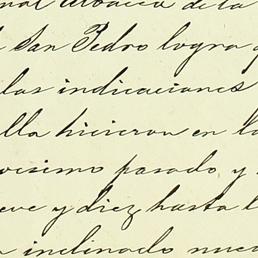 nal Albacea de la
San Pedro logra
las indicaciones
lla hicieron en la
visimo pasado, y
eve y diez hasta l
inclinado nue